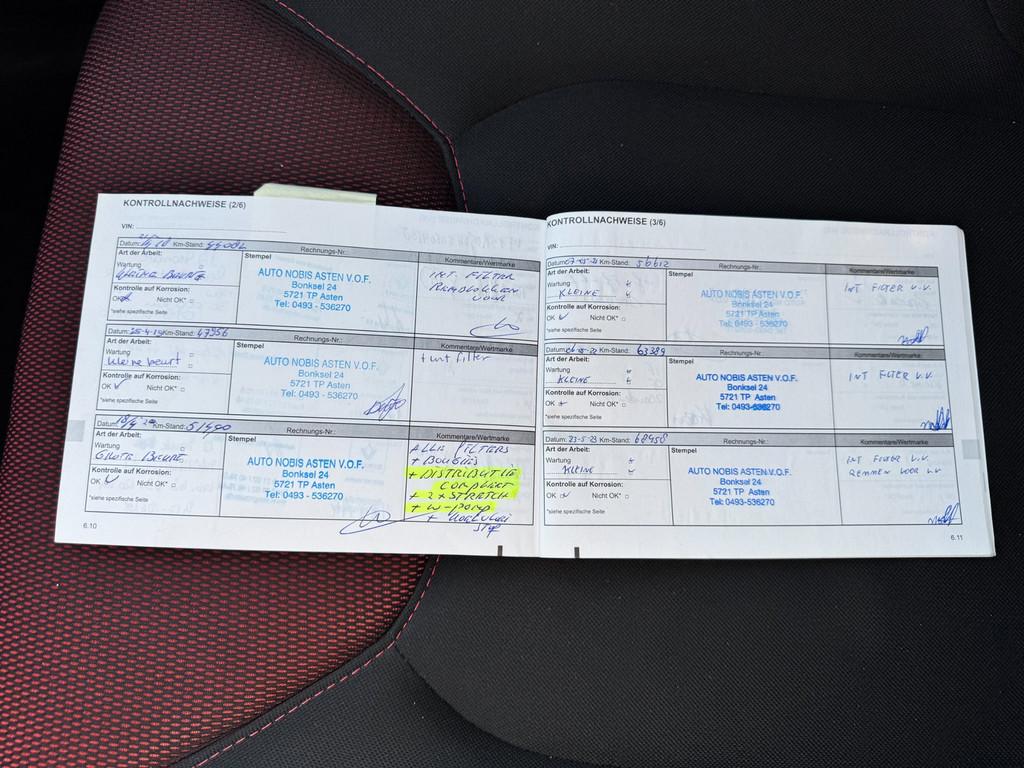 KONTROLLNACHWEISE (2/6)
VIN:
Datum: Km-Stand: Rechnungs-Nr.:
Art der Arbeit: Stempel Kommentare/Wertmarke
Wartung
KLEINE BEURT
Kontrolle auf Korrosion:
OK Nicht OK*
*siehe spezifische Seite
AUTO NOBIS ASTEN V.O.F.
Bonksel 24
5721 TP Asten
Tel: 0493 - 536270
INT. FILTER
REMBLOKKEN
VOOR
Datum: 25-4-19 Km-Stand: 47956 Rechnungs-Nr.:
Art der Arbeit: Stempel Kommentare/Wertmarke
Wartung
kleine beurt
Kontrolle auf Korrosion:
OK Nicht OK*
*siehe spezifische Seite
AUTO NOBIS ASTEN V.O.F.
Bonksel 24
5721 TP Asten
Tel: 0493 - 536270
+ int filter
Datum: Km-Stand: 51490 Rechnungs-Nr.:
Art der Arbeit: Stempel Kommentare/Wertmarke
Wartung
GROTE BEURT
Kontrolle auf Korrosion:
OK Nicht OK*
*siehe spezifische Seite
AUTO NOBIS ASTEN V.O.F.
Bonksel 24
5721 TP Asten
Tel: 0493 - 536270
ALLE FILTERS
+ BOUGIES
+ DISTRIBUTIE
COMPLEET
+ 2 x STRETCH
+ W-POMP
6.10
KONTROLLNACHWEISE (3/6)
VIN:
Datum: 07-05-21 Km-Stand: 56612 Rechnungs-Nr.:
Art der Arbeit: Stempel Kommentare/Wertmarke
Wartung
KLEINE
Kontrolle auf Korrosion:
OK Nicht OK*
*siehe spezifische Seite
AUTO NOBIS ASTEN V.O.F.
Bonksel 24
5721 TP Asten
Tel: 0493 - 536270
INT FILTER V.V.
Datum: Km-Stand: 63389 Rechnungs-Nr.:
Art der Arbeit: Stempel Kommentare/Wertmarke
Wartung
KLEINE
Kontrolle auf Korrosion:
OK Nicht OK*
*siehe spezifische Seite
AUTO NOBIS ASTEN V.O.F.
Bonksel 24
5721 TP Asten
Tel: 0493-536270
INT FILTER V.V.
Datum: 23-5-23 Km-Stand: 68958 Rechnungs-Nr.:
Art der Arbeit: Stempel Kommentare/Wertmarke
Wartung
KLEINE
Kontrolle auf Korrosion:
OK Nicht OK*
*siehe spezifische Seite
AUTO NOBIS ASTEN V.O.F.
Bonksel 24
5721 TP Asten
Tel: 0493 - 536270
INT FILTER V.V.
REMMEN VOOR V.V
6.11